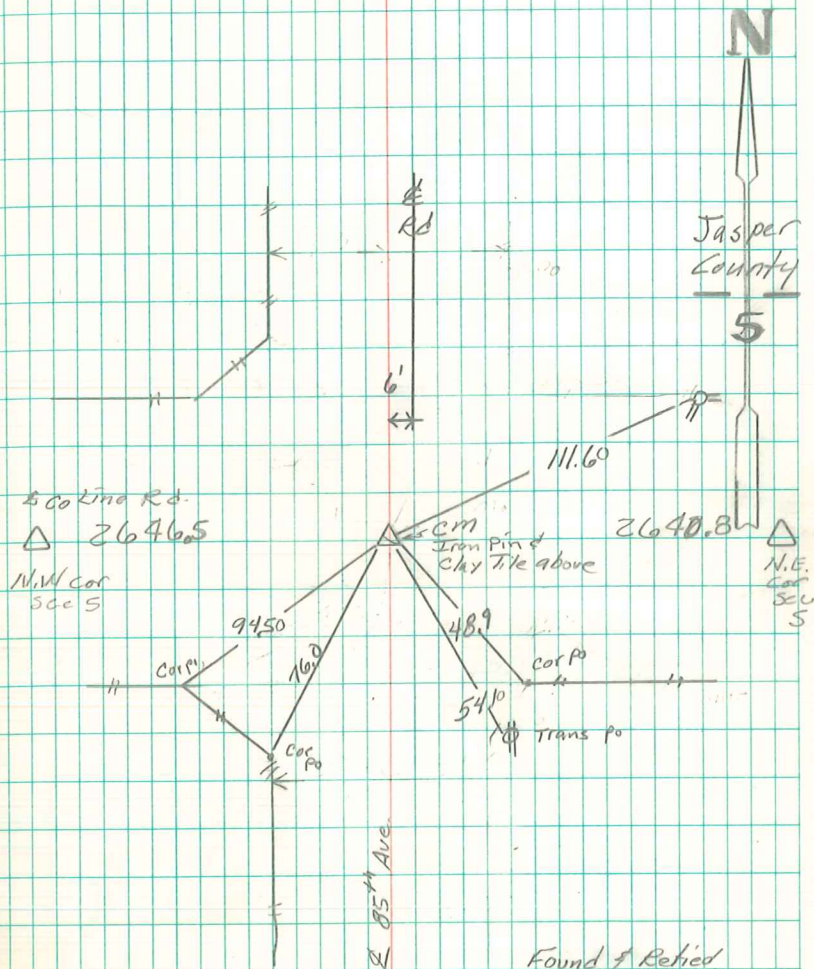 N
℄
Rd
Jasper
County
5
6'
111.60
℄ Co Line Rd.
2646.5
N.W cor
Sec 5
CM
Iron Pin &
Clay Tile above
2640.8
N.E.
Cor
Sec
5
94.50
76.0
48.9
54.10
Cor po
Cor
po
Cor po
Trans po
℄ 85th Ave.
Found & Retied